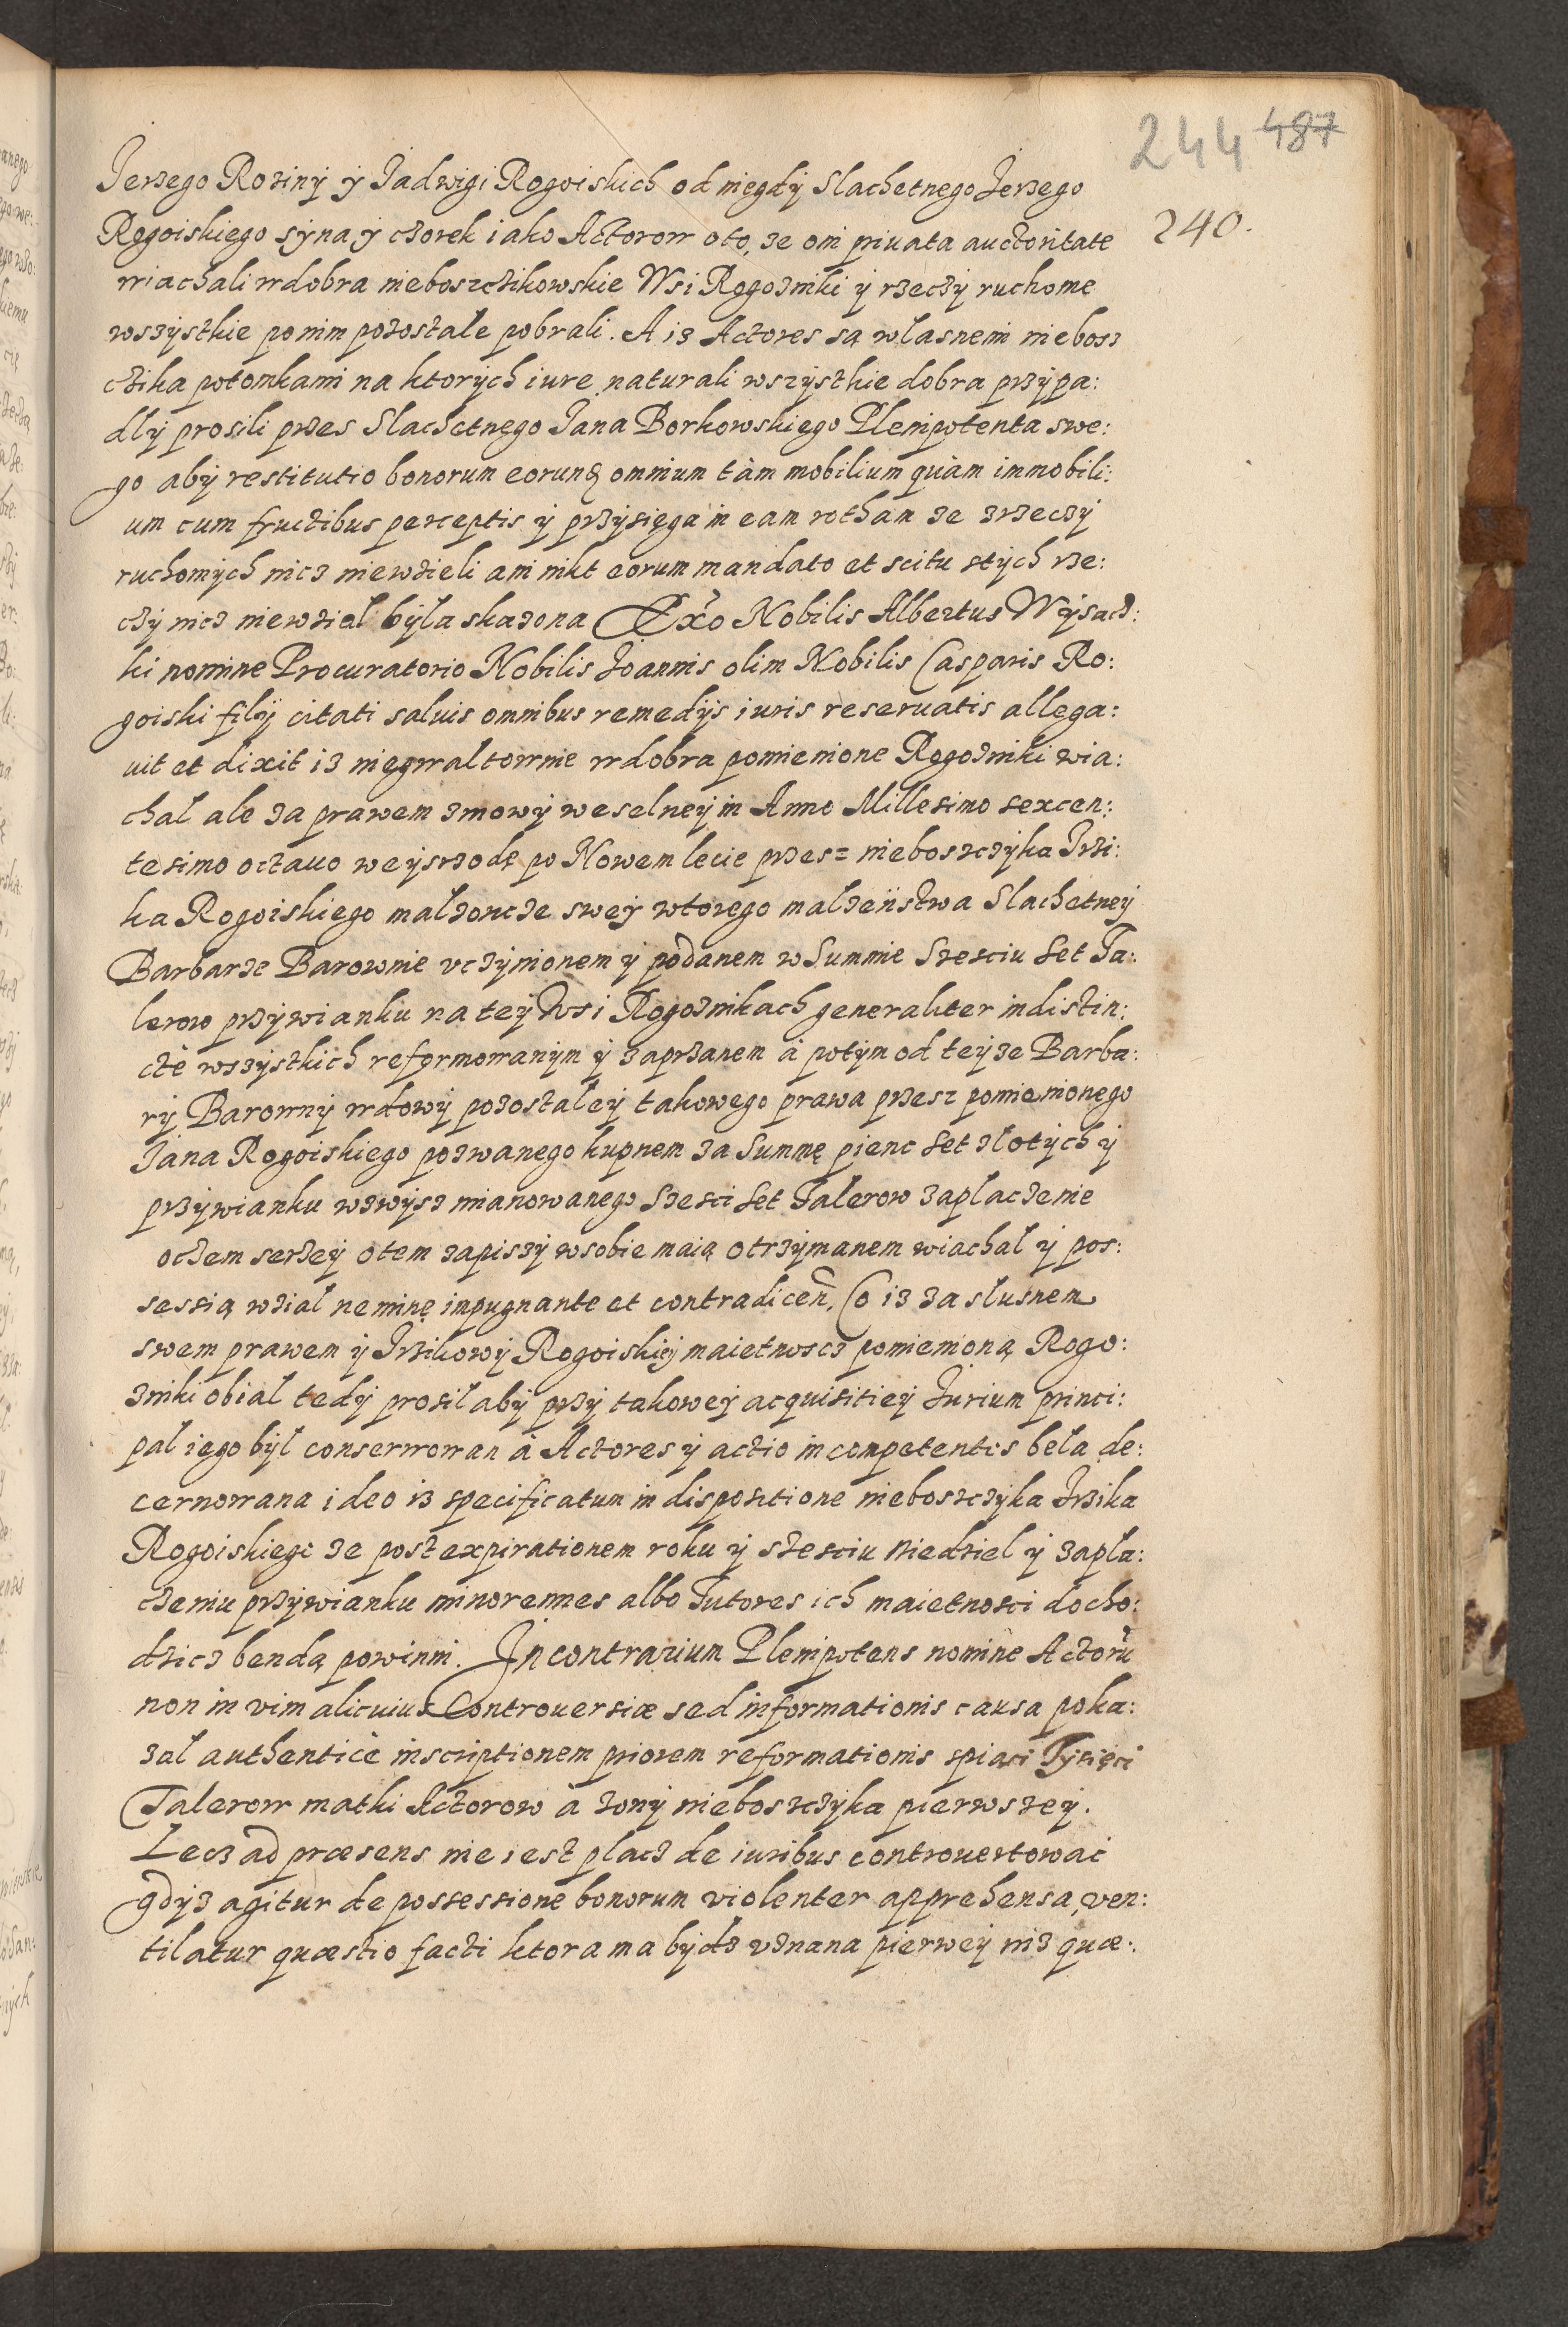 244 487
240.
Jerzego Roziny y Jadwigi Rogoiskich od niegdy Slachetnego Jerzego
Rogoiskiego syna y czorek iako Actorow oto, ze oni priuata auctoritate
wiachali w dobra nieboszczikowskie Wsi Rogozniki y rzeczy ruchome
wszystkie po nim pozostale pobrali. A iz Actores są wlasnemi niebosz
czika potomkami na ktorych iure naturali wszystkie dobra przypa:
dly prosili przes Slachetnego Jana Borkowskiego Plenipotenta swe:
go aby restitutio bonorum eorundę omnium tàm mobilium quàm immobili:
um cum fructibus perceptis y przysięga in eam rotham ze zrzeczy
ruchomych nicz niewzieli ani nikt eorum mandato et scitu stych rze:
czy nicz niewzial byla skazona Exo Nobilis Albertus Wysacz:
ki nomine Procuratorio Nobilis Joannis olim Nobilis Casparis Ro:
goiski filij citati saluis omnibus remedijs iuris reseruatis allega:
uit et dixit iz niegwaltownie w dobra pomienione Rogozniki wia:
chal ale za prawem zmowy weselney in Anno Millesimo sexcen:
tesimo octauo we ysrzodę po Nowem lecie przes= nieboszczyka Jrzi:
ka Rogoiskiego malzoncze swey wtorego malzeństwa Slachetney
Barbarze Barownie vczynionem y podanem w Summie Szesciu Set Ta:
lerow przywianku na tey Wsi Rogoznikach generaliter indistin:
ctè wszystkich reformowanym y zaprzanem à potym od teyze Barba:
ry Barowny wdowy pozostaley takowego prawa przesz pomienionego
Jana Rogoiskiego pozwanego kupnem za Summę pienc Set zlotych y
przywianku wzwysz mianowanego Szesci Set Talerow zaplaczenie
oczem serzey otem zapiszy wsobie maią otrzymanem wiachal y pos:
sessią wzial neminę impugnante et contradicen̄, Co iz za slusnem
swem prawem y Jrzikowy Rogoiskiej maietnoscz pomienioną Rogo:
zniki obial tedy prosil aby przy takowey acquisitiey Jurium princi:
pal iego byl conserwowan à Actores y actio incompetentis bela de:
cernowana ideo iz specificatum in dispositione nieboszczyka Jrzika
Rogoiskiego ze post expirationem roku y szesciu niedziel y zapla:
czeniu przywianku minorennes albo Tutores ich maietnosci docho:
dzicz bendą powinni. Jn contrarium Plenipotens nomine Actorū
non in vim alicuius Controuersiæ sed informationis causa poka:
zal authenticè inscriptionem priorem reformationis spiąci Tysięci
Talerow matki Actorow à zony nieboszczyka pierwszey.
Lecz ad præsens nie iest placz de iuribus controuertowac
gdysz agitur de possessione bonorum violenter apprehensa, ven:
tilatur quæstio facti ktora ma bydz vznana pierwey niz quæ: